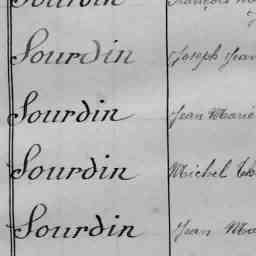 Sourdin
Sourdin Joseph Jean
Sourdin Jean Marie
Sourdin Michel
Sourdin Jean